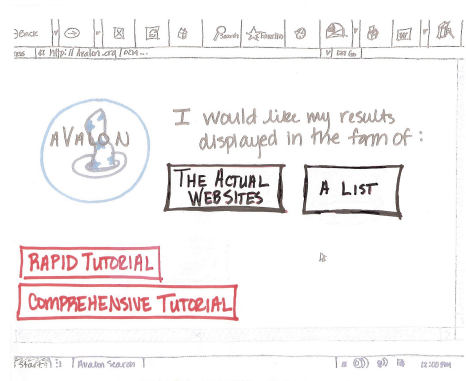 Back
Search
Favorites
http://Avalon.org/
Go
AVALON
I would like my results
displayed in the form of:
THE ACTUAL
WEBSITES
A LIST
RAPID TUTORIAL
COMPREHENSIVE TUTORIAL
Start
Avalon Search
12:00 PM